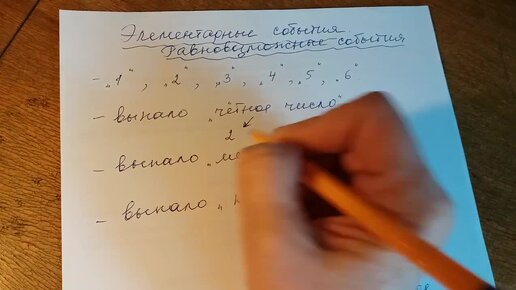 Элементарные события.
Равновозможные события
- „1", „2", „3", „4", „5", „6"
- выпало „чётное число"
2
- выпало „ме
- выпало „